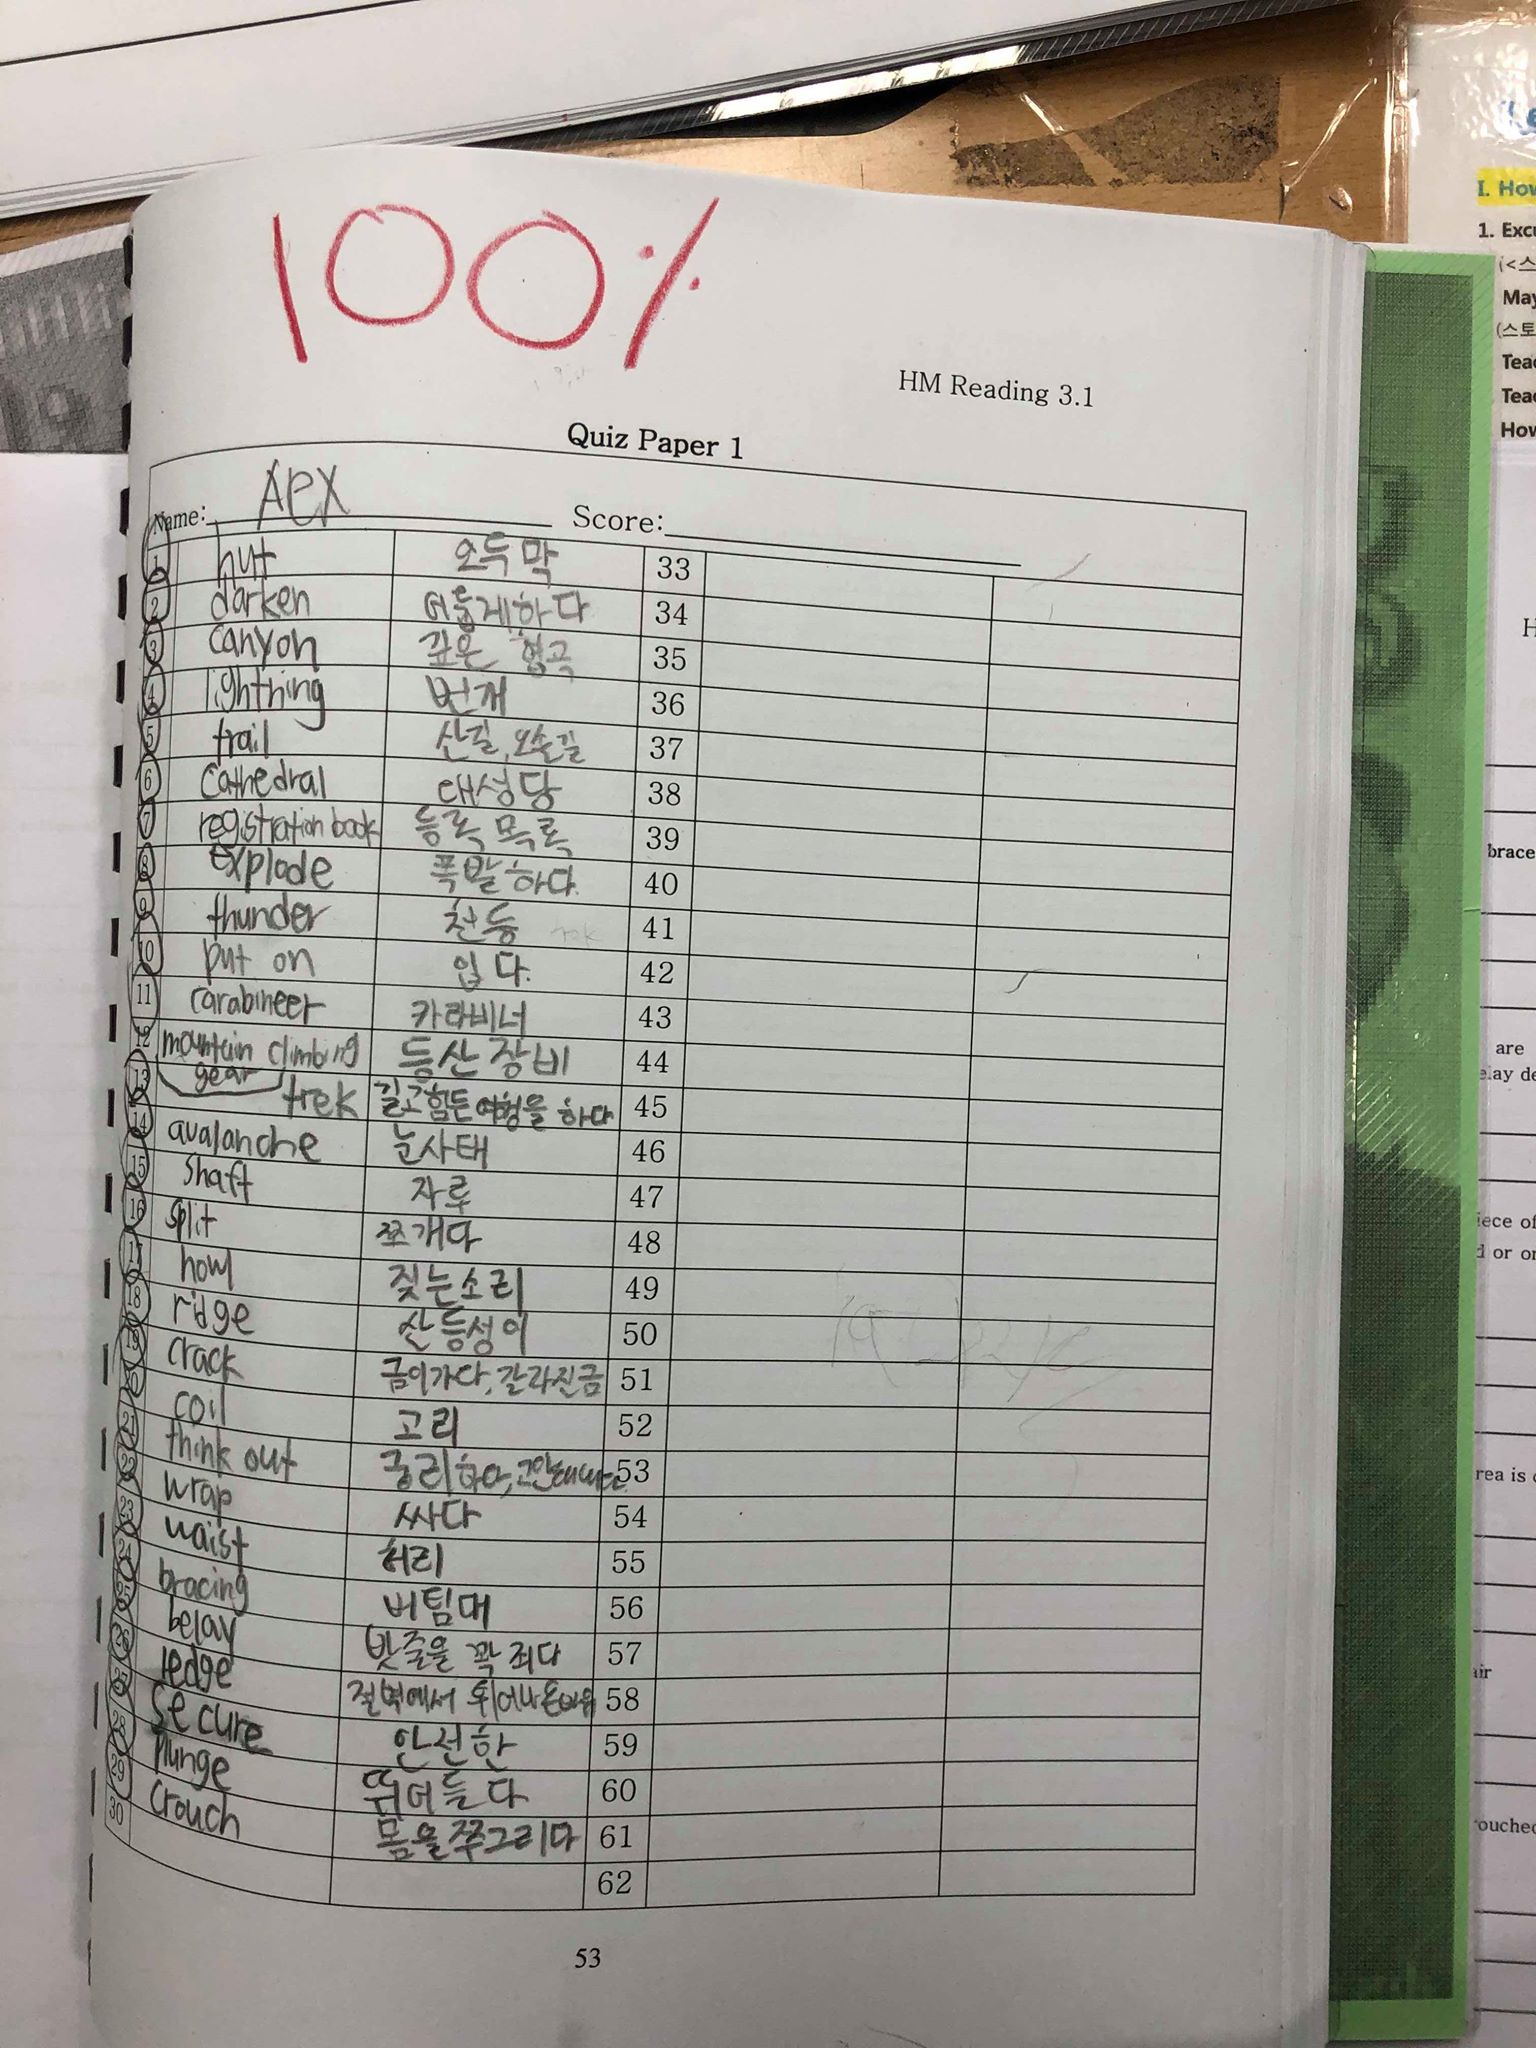 100%
HM Reading 3.1
Quiz Paper 1
Name: Apex Score:
1 hut 오두막 33
2 darken 어둡게하다 34
3 canyon 깊은 협곡 35
4 lightning 번개 36
5 trail 산길, 오솔길 37
6 cathedral 대성당 38
7 registration book 등록 목록 39
8 explode 폭발하다. 40
9 thunder 천둥 41
10 put on 입다. 42
11 carabineer 카라비너 43
12 mountain climbing gear 등산장비 44
13 trek 길고힘든여행을 하다 45
14 avalanche 눈사태 46
15 shaft 자루 47
16 split 쪼개다 48
17 howl 짖는소리 49
18 ridge 산등성이 50
19 crack 금이가다, 갈라진금 51
20 coil 고리 52
21 think out 궁리하다, 53
22 wrap 싸다 54
23 waist 허리 55
24 bracing 버팀대 56
25 belay 밧줄을 꽉 죄다 57
26 ledge 절벽에서 튀어나온바위 58
27 secure 안전한 59
28 plunge 뛰어들다 60
29 crouch 몸을쭈그리다 61
30 62
53
I. How
1. Excu
(<스
May
(스토
Teac
Teac
How
H
brace
are
elay de
iece of
d or or
rea is c
air
rouched